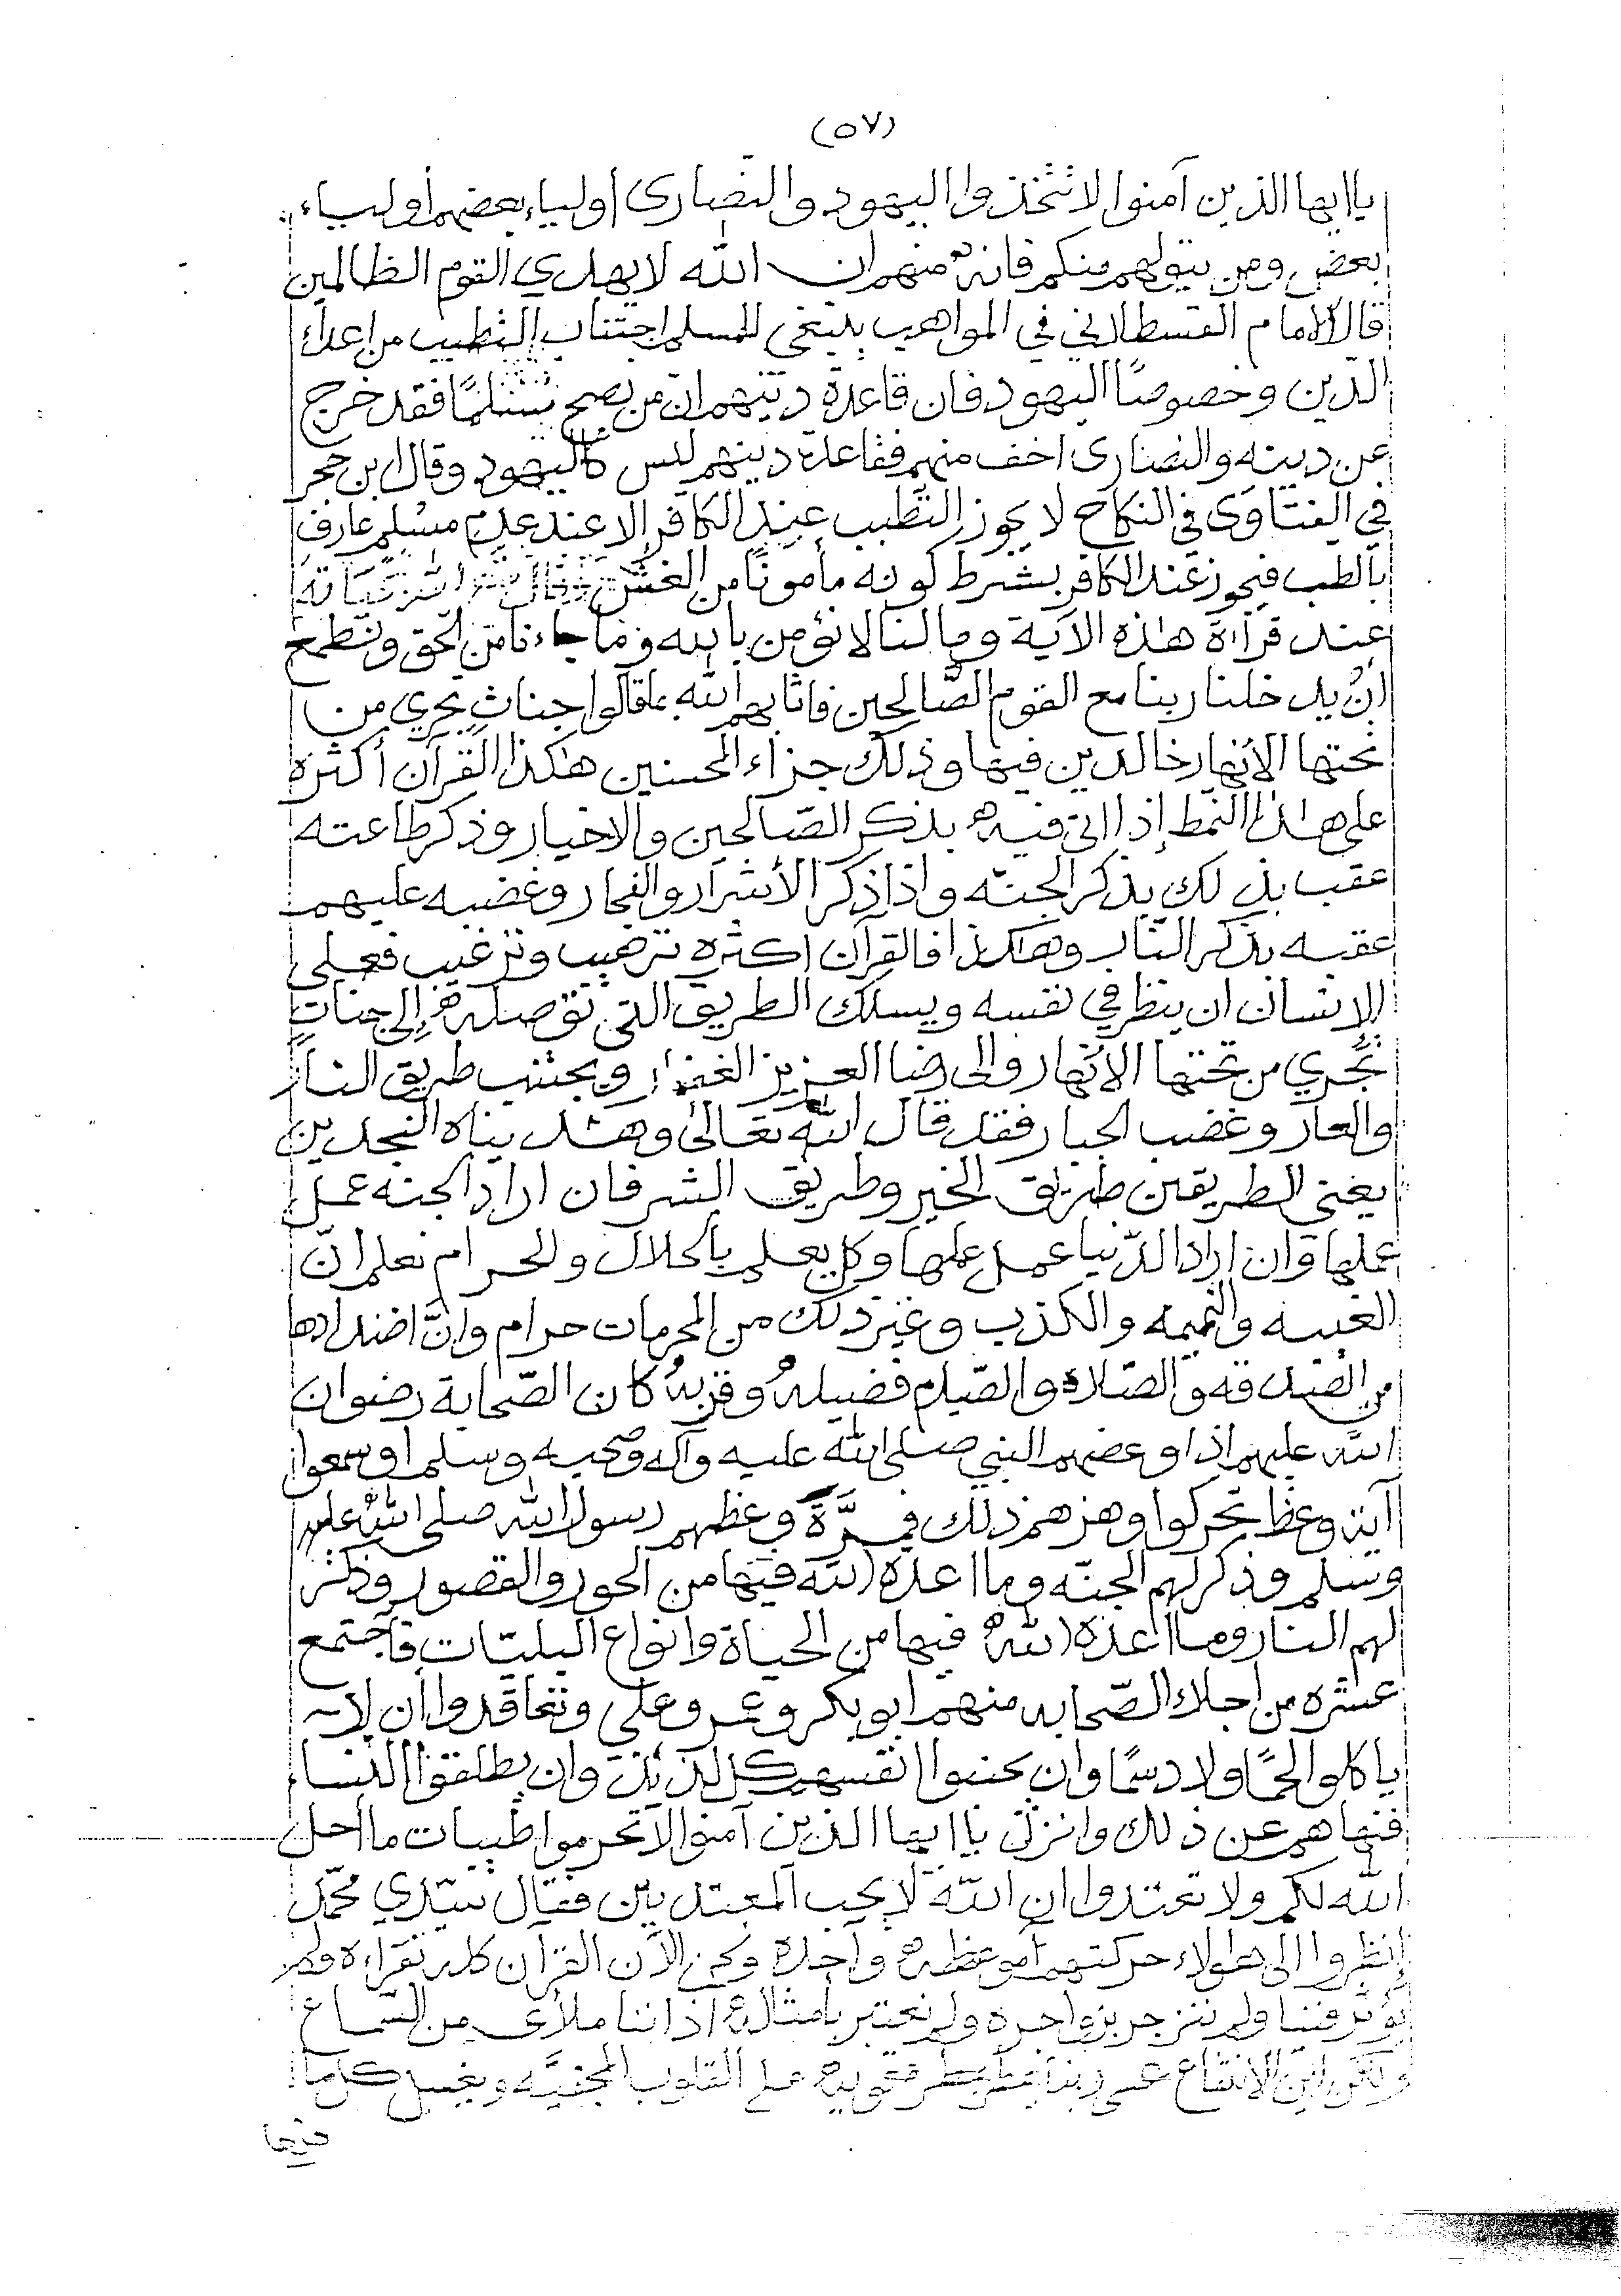 (٥٧)
يا ايها الذين آمنوا لا تتخذوا اليهود والنصارى أولياء بعضهم أولياء
بعض ومن يتولهم منكم فانه منهم ان الله لا يهدي القوم الظالمين
قال الامام القسطلاني في المواهب ينبغي للمسلم اجتناب التطبب من اعداء
الدّين وخصوصًا اليهود فان قاعدة دينهم انّ من نصح مسلمًا فقد خرج
عن دينه والنصارى اخف منهم فقاعدة دينهم ليس كاليهود وقال ابن حجر
في الفتاوى في النكاح لا يجوز التطبب عند الكافر الا عند عدم مسلم عارف
بالطب فيجوز عند الكافر بشرط كونه مأمونًا من الغش وقال
عند قرآءة هاذه الآية وما لنا لا نؤمن بالله وما جاءنا من الحق ونطمع
أن يدخلنا ربنا مع القوم الصّالحين فاثابهم الله بما قالوا جنات تجري من
تحتها الأنهار خالدين فيها وذلك جزاء المحسنين هاكذا القرآن أكثره
على هاذا النمط إذا اتى فيه بذكر الصّالحين والاخيار وذكر طاعته
عقب بذلك بذكر الجنّه واذا ذكر الأشرار والفجار وغضبه عليهم
عقبه بذكر النّار وهاكذا فالقرآن اكثره ترهيب وترغيب فعلى
الانسان ان ينظر في نفسه ويسلك الطريق التي توصله إلى جنات
تجري من تحتها الأنهار والى رضا العزيز الغفار ويجتنب طريق النار
والعار وغضب الجبار فقد قال الله تعالى وهديناه النجدين
يعني الطريقين طريق الخير وطريق الشر فان اراد الجنه عمل
عملها وان اراد الدّنيا عمل عملها وكل يعلم بالحلال والحرام نعلم انّ
الغيبه والنميمه والكذب وغير ذلك من المحرمات حرام وانّ اضدادها
من الصّدقه والصّلاة والصّيام فضيلةٌ وقربةٌ كان الصّحابة رضوان
الله عليهم اذا وعضهم النبي صلى الله عليه وآله وصحبه وسلم او سمعوا
آية وعظ تحركوا وهزهم ذلك فمرَّةً وعظهم رسول الله صلى الله عليه
وسلم وذكر لهم الجنّه وما اعدّه الله فيها من الحور والقصور وذكر
لهم النار وما اعدّه الله فيها من الحياة وانواع البليّات فاجتمع
عشره من اجلاء الصّحابه منهم ابو بكر وعمر وعلي وتعاقدوا أن لا
ياكلوا لحمًا ولا دسمًا وان يجنبوا انفسهم كل لذّة وان يطلقوا النساء
فنهاهم عن ذلك وانزل يا ايها الذين آمنوا لا تحرموا طيبات ما أحل
الله لكم ولا تعتدوا ان الله لا يحب المعتدين فقال سيّدي محمّد
إنظروا الى هولاء حركتهم موعظة واحدة ونحن الآن القرآن كله نقراءه ولم
يؤثر فينا ولم ننزجر بزواجره ولم نعتبر بأمثاله اذاننا ملأى من السّماع
ولكن اين الانتفاع عسى ربنا على القلوب ويغسل كل ما
فيها